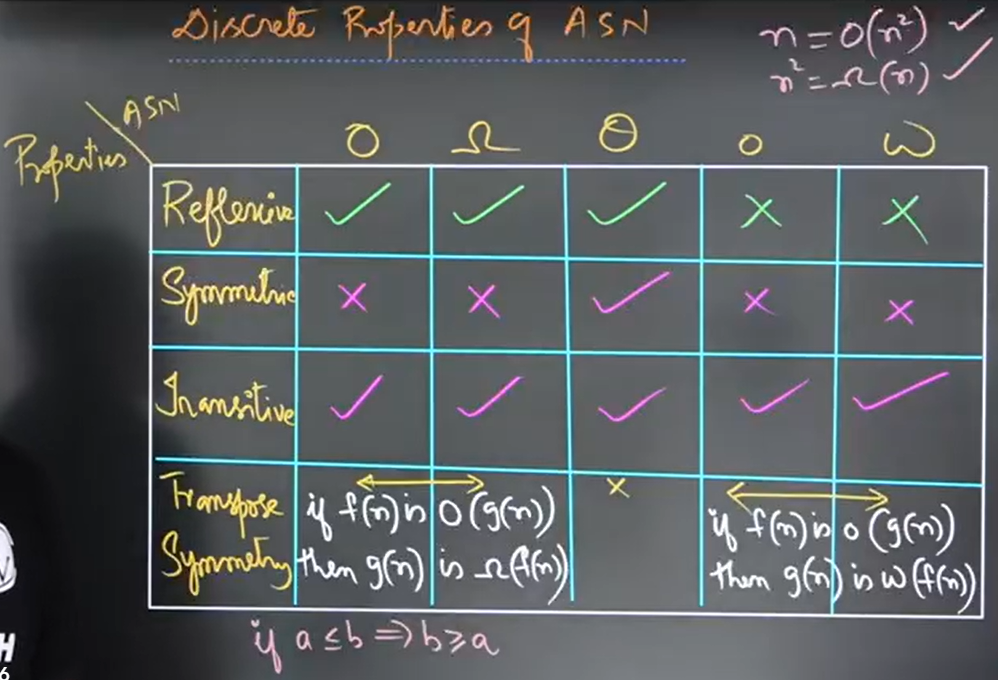 Discrete Properties of ASN
n = O(n²) ✓
n² = Ω(n) ✓
ASN
Properties
O Ω Θ o ω
Reflexive ✓ ✓ ✓ × ×
Symmetric × × ✓ × ×
Transitive ✓ ✓ ✓ ✓ ✓
Transpose Symmetry
if f(n) is O(g(n))
then g(n) is Ω(f(n))
×
if f(n) is o(g(n))
then g(n) is ω(f(n))
if a ≤ b ⇒ b ≥ a
H
6